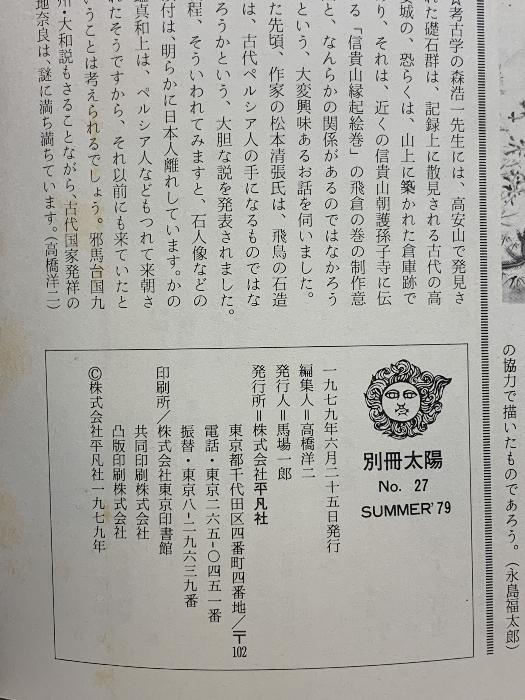 の協力で描いたものであろう。(永島福太郎)
考古学の森浩一先生には、高安山で発見さ
れた礎石群は、記録上に散見される古代の高
安城の、恐らくは、山上に築かれた倉庫跡で
あり、それは、近くの信貴山朝護孫子寺に伝
る「信貴山縁起絵巻」の飛倉の巻の制作意
と、なんらかの関係があるのではなかろう
という、大変興味あるお話を伺いました。
た先頃、作家の松本清張氏は、飛鳥の石造
は、古代ペルシア人の手になるものではな
ろうかという、大胆な説を発表されました。
程、そういわれてみますと、石人像などの
付は、明らかに日本人離れしています。かの
鑑真和上は、ペルシア人などもつれて来朝さ
れたそうですから、それ以前にも来ていたと
いうことは考えられるでしょう。邪馬台国九
州・大和説もさることながら、古代国家発祥の
地奈良は、謎に満ち満ちています。(高橋洋二)
別冊太陽
No. 27
SUMMER'79
一九七九年六月二十五日発行
編集人=高橋洋二
発行人=馬場一郎
発行所=株式会社平凡社
東京都千代田区四番町四番地/〒102
電話・東京二六五—〇四五一番
振替・東京八—二九六三九番
印刷所/株式会社東京印書館
共同印刷株式会社
凸版印刷株式会社
©株式会社平凡社一九七九年